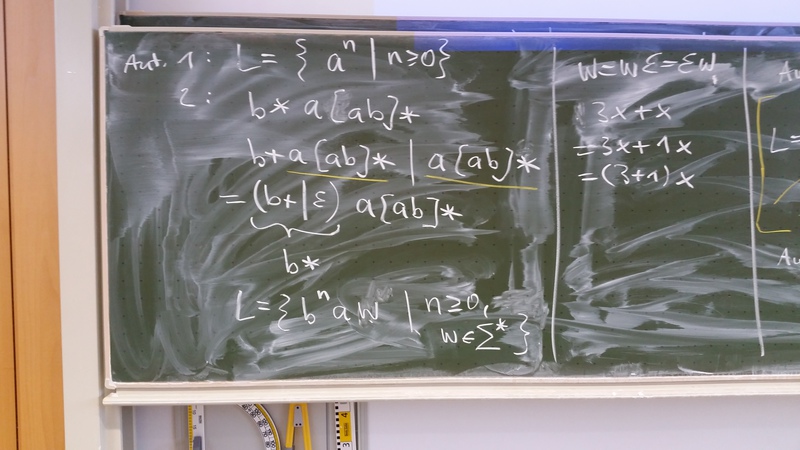 Aut. 1: L = { aⁿ | n≥0}
2: b* a[ab]*
b+a[ab]* | a[ab]*
= (b+|ε) a[ab]*
b*
L={ bⁿ a w | n≥0,
w∈Σ* }
w=wε=εw,
3x+x
=3x+1x
=(3+1)x
Au
L=
Au